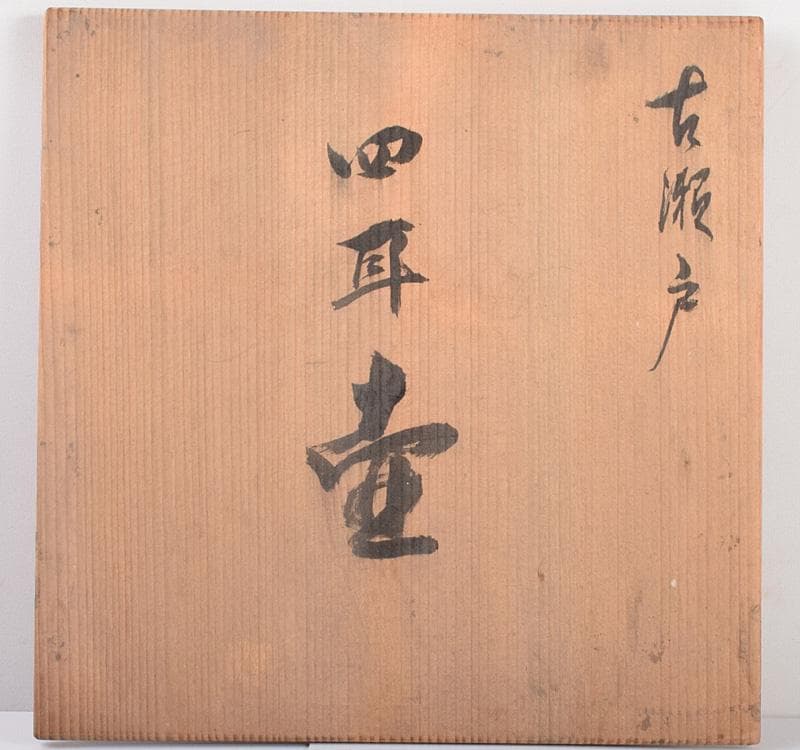 古瀬戸
四耳壷